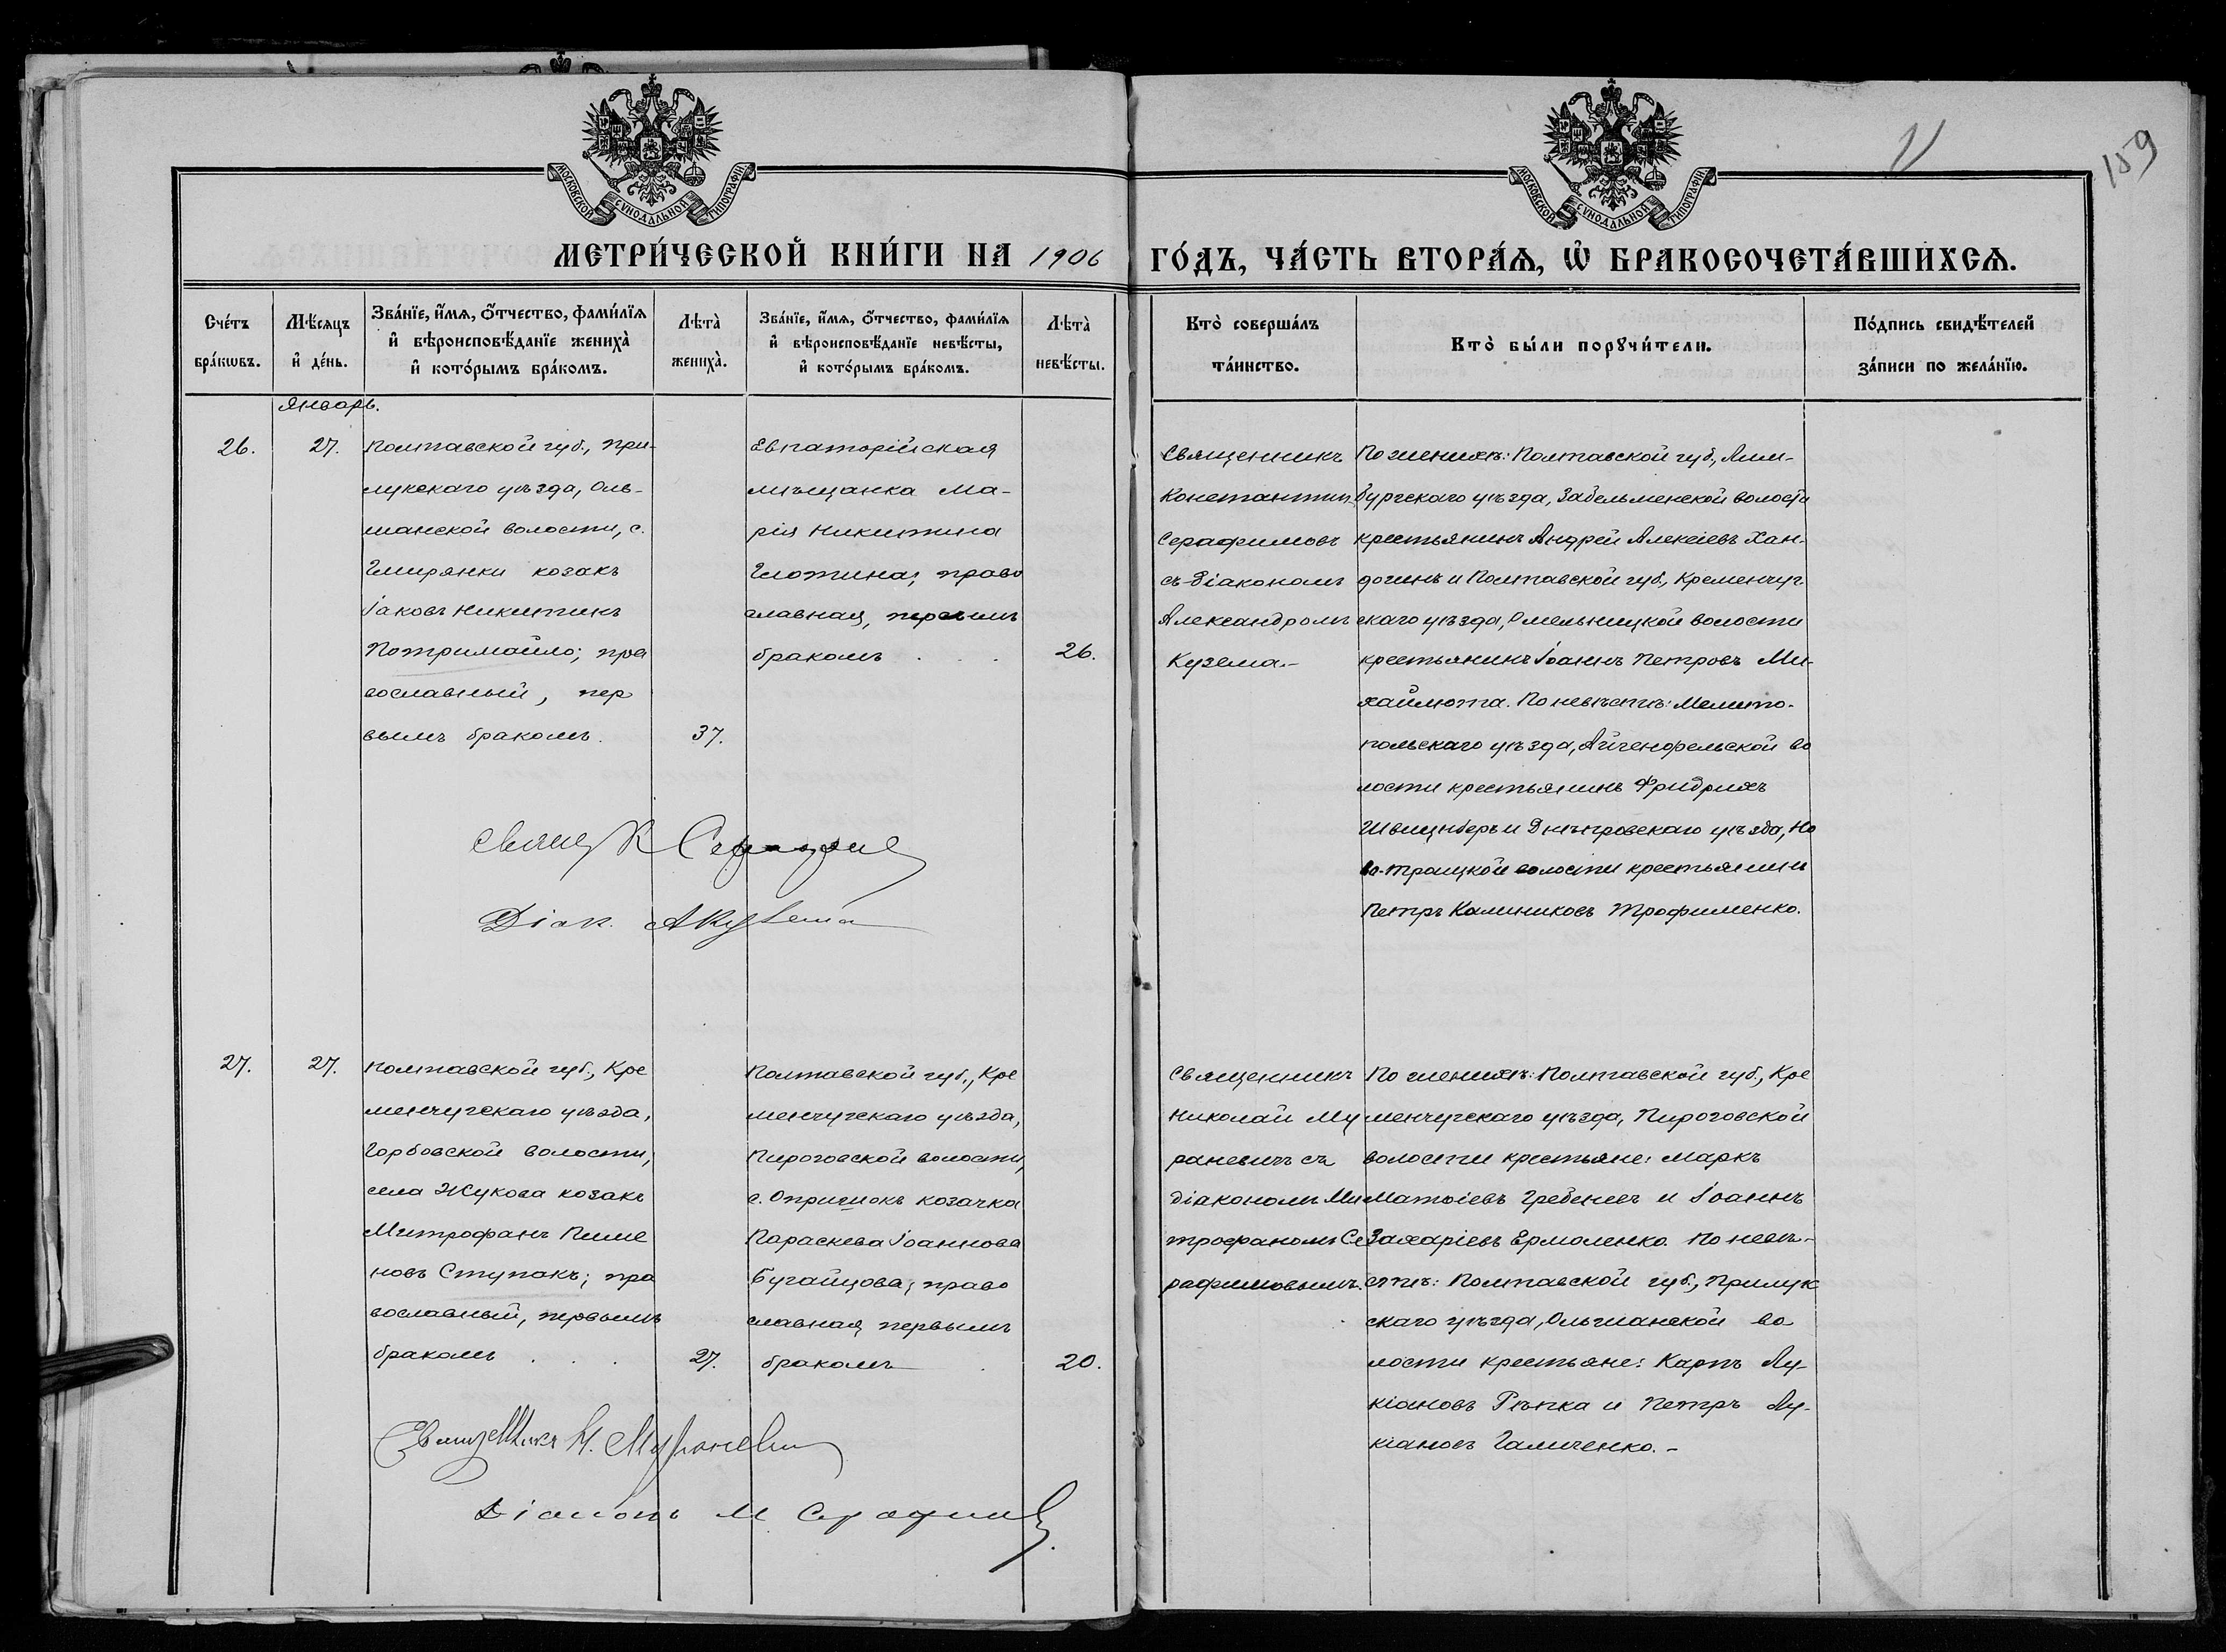 11
159
МОСКОВСКОЙ СѴНОДАЛЬНОЙ ТИПОГРАФІИ
МОСКОВСКОЙ СѴНОДАЛЬНОЙ ТИПОГРАФІИ
МЕТРИ́ЧЕСКОЙ КНИ́ГИ НА 1906 ГО́ДЪ, ЧА́СТЬ ВТОРА́Ѧ, Ѽ БРАКОСОЧЕТА́ВШИХСѦ.
Сче́тъ
бра́кѡвъ.
Мѣ́сяцъ
и҆ де́нь.
Зва́нїе, и҆́мѧ, ѻ҆́тчество, фами́лїѧ
и҆ вѣроисповѣ́данїе жениха̀
и҆ кото́рымъ бра́комъ.
Лѣта̀
жениха̀.
Зва́нїе, и҆́мѧ, ѻ҆́тчество, фами́лїѧ
и҆ вѣроисповѣ́данїе невѣ́сты,
и҆ кото́рымъ бра́комъ.
Лѣта̀
невѣ́сты.
Кто̀ соверша́лъ
та́инство.
Кто̀ бы́ли порꙋчи́тели.
По́дпись свидѣ́телей
за́писи по жела́нїю.
Январь.
26.
27.
Полтавской губ., При-
лукскаго уѣзда, Оль-
шанской волости, с.
Гмирянки козакъ
Іаковъ Никитинъ
Потримайло; пра
вославный, пер
вымъ бракомъ.
37.
Евпаторійская
мѣщанка Ма-
рія Никитина
Глотина; право
славная, первымъ
бракомъ . . .
26.
Священникъ
Константинъ
Серафимовъ
съ діакономъ
Александромъ
Кузема.-
По женихѣ: Полтавской губ.,
бургскаго уѣзда, волости
крестьянинъ Андрей Алексіевъ Хан-
догинъ и Полтавской губ., Кременчуг
скаго уѣзда, Омельницкой волости
крестьянинъ Іоаннъ Петровъ Ми-
хайлюта. По невѣстѣ: Мелито-
польскаго уѣзда, Айгенфельской во
лости крестьянинъ Фридрихъ
и Днѣпровскаго уѣзда, Но
во-Троицкой волости крестьянинъ
Петръ Калиниковъ Трофименко.
Свящ К Серафимов
Діак. А Кузема
27.
27.
Полтавской губ., Кре
менчугскаго уѣзда,
Горбовской волости,
села Жукова козакъ
Митрофанъ Пиме
новъ Ступакъ; пра
вославный, первымъ
бракомъ . . .
27.
Полтавской губ., Кре
менчугскаго уѣзда,
Пироговской волости,
с. Опришокъ козачка
Параскева Іоаннова
Бугайцова; право
славная первымъ
бракомъ .
20.
Священникъ
Николай Му
раневичъ съ
діакономъ Ми
трофаномъ Се
рафимовымъ.
По женихѣ: Полтавской губ., Кре
менчугскаго уѣзда, Пироговской
волости крестьяне: Маркъ
Матѳіевъ Гребенев и Іоаннъ
Захаріевъ Ермоленко. По невѣ-
стѣ: Полтавской губ., Прилук
скаго уѣзда, Ольшанской во
лости крестьяне: Карпъ Лу-
кіановъ Рѣпка и Петръ Лу-
кіановъ Галиченко.-
Священникъ Н. Мураневич
Діаконъ М Серафимов